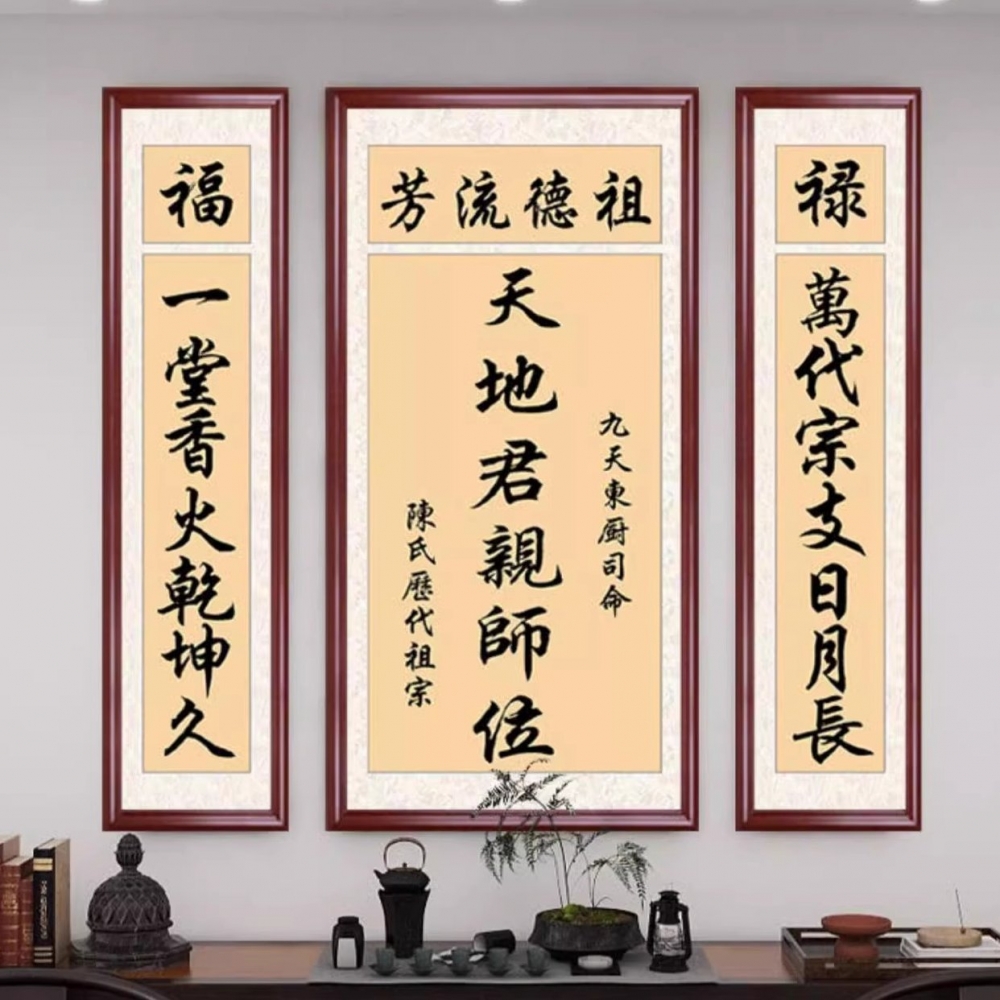 禄
萬代宗支日月長
祖德流芳
九天東厨司命
天地君親師位
陳氏歷代祖宗
福
一堂香火乾坤久